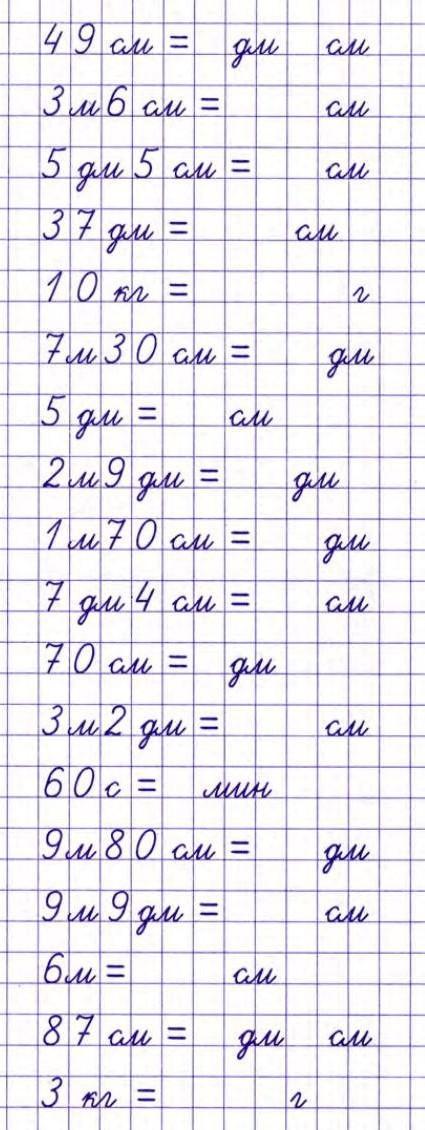 49 см = дм см
3 м 6 см = см
5 дм 5 см = см
37 дм = см
10 кг = г
7 м 30 см = дм
5 дм = см
2 м 9 дм = дм
1 м 70 см = дм
7 дм 4 см = см
70 см = дм
3 м 2 дм = см
60 с = мин
9 м 80 см = дм
9 м 9 дм = см
6 м = см
87 см = дм см
3 кг = г